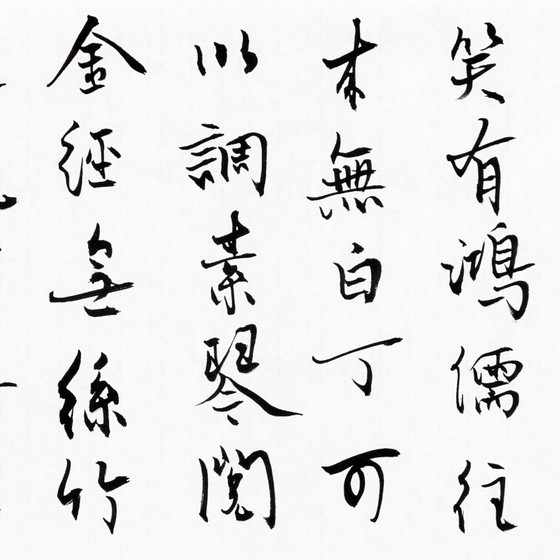 笑有鴻儒往
来無白丁可
以調素琴閱
金經無絲竹